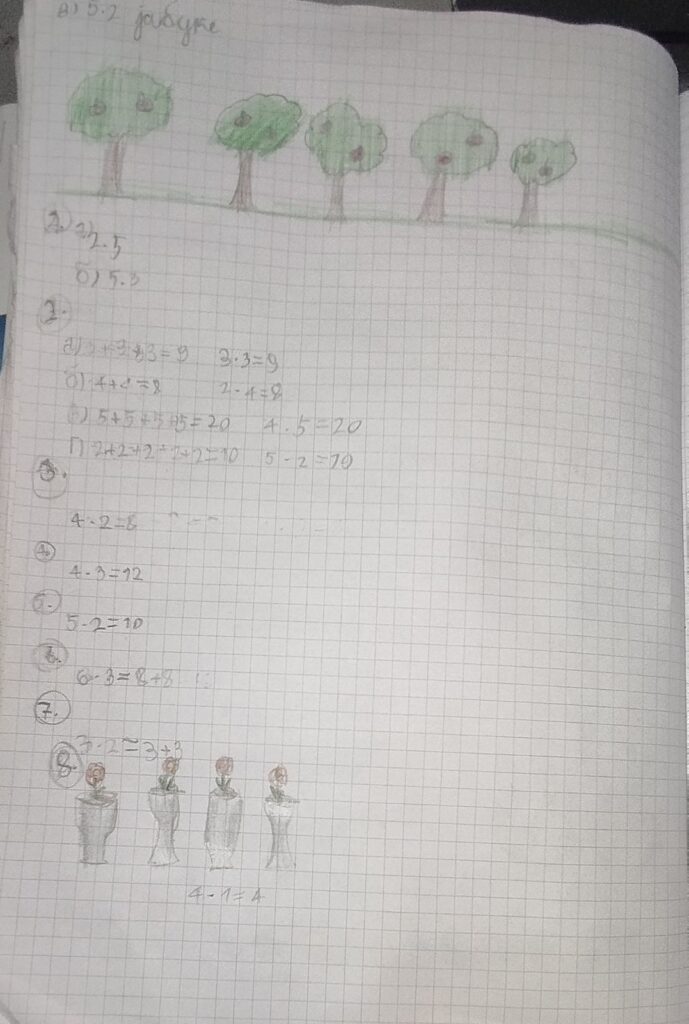 в) 5·2 јабуке
2) а) 2·5
б) 5·3
2.
а) 3+3+3=9 3·3=9
б) 4+4=8 2·4=8
в) 5+5+5+5=20 4·5=20
г) 2+2+2+2+2=10 5·2=10
3.
4·2=8
4.
4·3=12
5.
5·2=10
6.
6·3=8+8
7.
3·2=3+3
8.
4·1=4